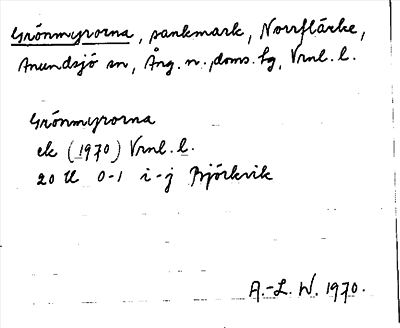 Grönmyrorna, sankmark, Norrflärke,
Anundsjö sn, Ång. n. doms. tg, Vrnl. l.
Grönmyrorna
ek (1970) Vrnl. l.
20 U 0-1 i-j Björkvik
A.-L. W. 1970.